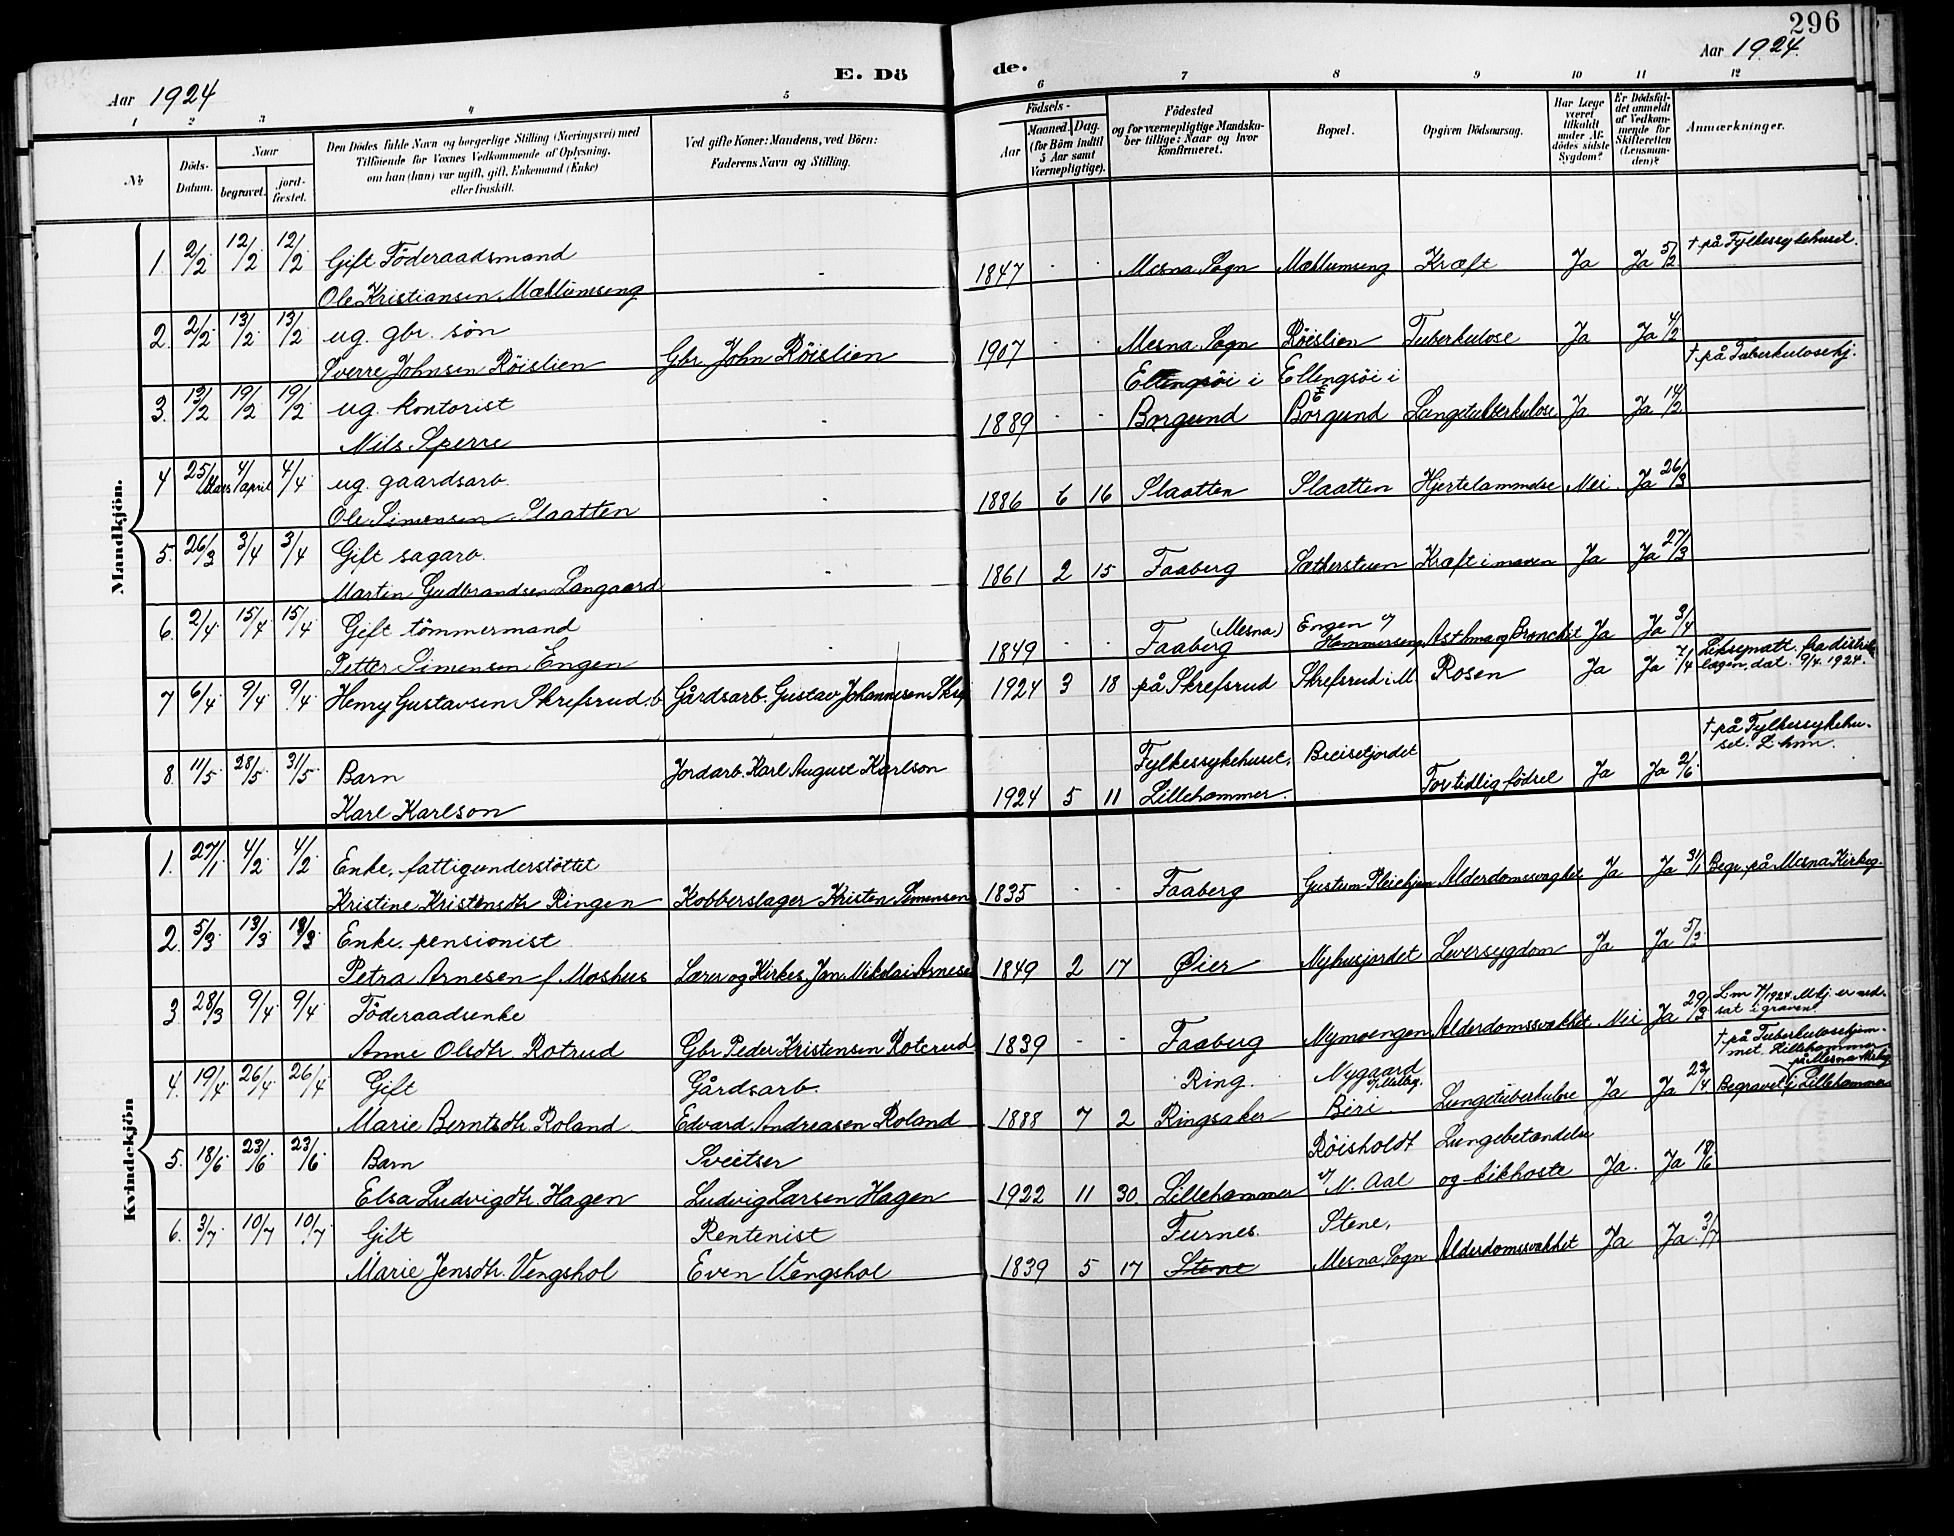 296
Aar 1924
E. Dö
de.
Aar 1924.
1 2 3 4 5 6 7 8 9 10 11 12
No
Döds-Datum.
Naar
begravet.
jord-fæstet.
Den Dödes fulde Navn og borgerlige Stilling (Næringsvei) med
Tilföiende for Voxnes Vedkommende af Oplysning,
om han (hun) var ugift, gift, Enkemand (Enke)
eller fraskilt.
Ved gifte Koner: Mandens, ved Börn:
Faderens Navn og Stilling.
Födsels-
Aar
Maaned. Dag.
(for Börn indtil
5 Aar samt
Værnepligtige).
Födested
og for værnepligtige Mandska-
ber tillige: Naar og hvor
konfirmeret.
Bopæl.
Opgiven Dödsaarsag.
Har Læge
været
tilkaldt
under Af-
dödes sidste
Sygdom?
Er Dödsfal-
det anmeldt
af Vedkom-
mende for
Skifteretten
(Lensman-
den)?
Anmærkninger.
Mandkjön.
1. 2/2 12/2 12/2 Gift Föderaadsmand
Ole Kristiansen Mæhlumseng 1847 Mesna Sogn Mæhlumseng Kræft Ja Ja 5/2 † på Fylkessykehuset.
2. 2/2 13/2 13/2 ug. gbr. sön
Sverre Johnsen Röislien Gbr. John Röislien 1907 Mesna Sogn Röislien Tuberkulose Ja Ja 4/2
† på Tuberkulosehj.
3. 13/2 19/2 19/2 ug. kontorist
Nils Sperre 1889 Ellingsöi i Borgund Ellingsöi i Borgund Lungetuberkulose Ja Ja 14/2
4 25/Mars 4/april 4/4 ug. gaardsarb.
Ole Simensen Slaatten 1886 6 16 Slaatten Slaatten Hjertelammelse Nei Ja 26/3
5. 26/3 3/4 3/4 Gift sagarb.
Martin Gudbrandsen Langaard 1861 2 15 Faaberg Sæthersteen Kræft i maven Ja Ja 27/3
6. 2/4 15/4 15/4 Gift tömmermand
Petter Simensen Engen 1849 Faaberg (Mesna) Engen v/ Hammerseng Asthma og Bronchit Ja Ja 3/4
7 6/4 9/4 9/4 Henry Gustavsen Skrefsrud. b. Gårdsarb. Gustav Johannesen Skref 1924 3 18 på Skrefsrud Skrefsrud i M. Rosen Ja Ja 7/4 fra distrikts-
lægen, dat. 9/4. 1924.
8. 11/5 28/5 31/5 Barn
Karl Karlson Jordarb. Karl August Karlson 1924 5 11 Fylkessykehuset, Lillehammer. Breisetjordet For tidlig födsel Ja Ja 2/6 † på Fylkessykehu-
set. L.hmr.
Kvindekjön
1. 27/1 4/2 4/2 Enke, fattigunderstöttet
Kristine Kristensdtr. Ringen Kobberslager Kristen Simensen 1835 Faaberg Gustum Pleiehjem Alderdomssvaghet Ja Ja 31/1 Begr. på Mesna Kirkeg.
2. 5/3 13/3 13/3 Enke. pensionist
Petra Arnesen f. Moshus Lærer og Kirkes. Jan Nikolai Arnesen 1849 2 17 Øier Nyhusjordet Leversygdom Ja Ja 5/3
3 28/3 9/4 9/4 Föderaadsenke
Anne Olsdtr. Rotrud Gbr. Peder Kristensen Roterud 1839 Faaberg Nymoengen Alderdomssvakhet Nei Ja 29/3 er ned-
sat i graven.
4. 19/4 26/4 26/4 Gift Gårdsarb.
Marie Berntsdtr. Roland Edvard Andreasen Roland 1888 7 2 Ring. Ringsaker Nygaard Biri. Lungetuberkulose Ja Ja 22/4 † på Tuberkulosehjem-
met, Lillehammer
Begravet på Mesna Kirkeg. i Lillehammer
5. 18/6 23/6 23/6 Barn Sveitser
Elsa Ludvigdtr. Hagen Ludvig Larsen Hagen 1922 11 30. Lillehammer Röisholdt v/ N. Aal Lungebetændelse og kikhoste Ja. Ja 18/6
6. 3/7 10/7 10/7 Gift Rentenist
Marie Jensdtr. Vengshol Even Vengshol 1839 5 17 Furnes. Stene Stene, Mesna Sogn Alderdomssvakhet Ja Ja. 3/7